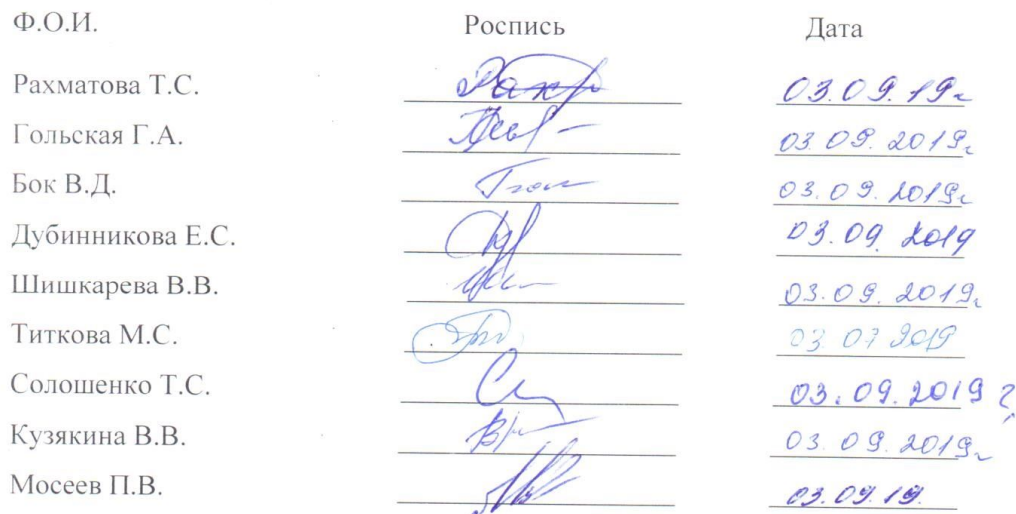 Ф.О.И. Роспись Дата
Рахматова Т.С. 03.09.19г
Гольская Г.А. 03.09.2019г.
Бок В.Д. 03.09.2019г
Дубинникова Е.С. 03.09.2019
Шишкарева В.В. 03.09.2019г.
Титкова М.С. 03 07 2019
Солошенко Т.С. 03.09.2019 г.
Кузякина В.В. 03.09.2019г
Мосеев П.В. 03.09.19.